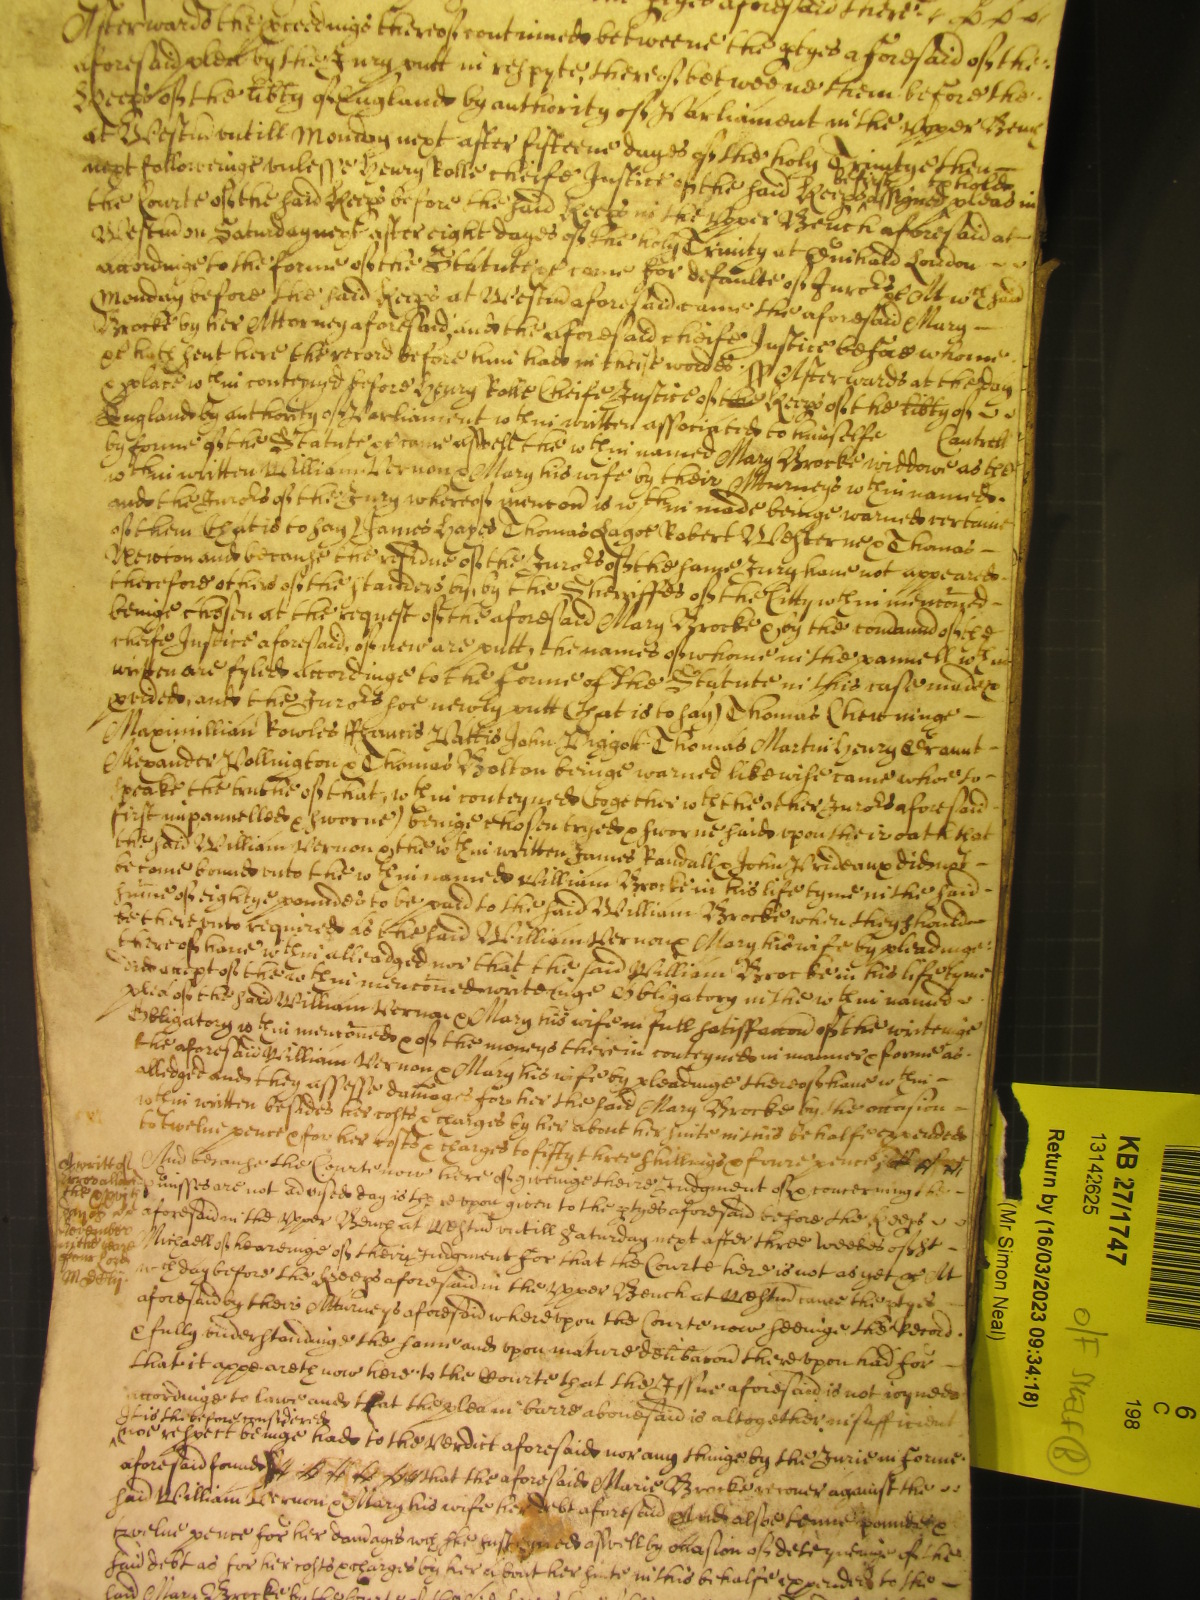 ptyes aforesaid there &c
Afterwards the pceedings thereof continued betweene the ptyes aforesaid of the
aforesaid plea by the Jury putt in respyte thereof betweene them before the
Keeps of the libty of England by authority of Parliament in the upper Bench
at Westm untill Monday next after fifteene dayes of the holy Trinitye then
next followeinge unlesse Henry Rolle cheife Justice of the said Keeps before assigned to hold pleas in
the Courte of the said Keeps before the said Keeps in the upper Bench aforesaid at
Westm on Saturday next after eight dayes of the holy Trinity at Guihald London
accordinge to the forme of the Statute &c came for defaulte of Jurors &c Att wch said
Monday before the said Keeps at Westm aforesaid came the aforesaid Mary
Brocke by her Attorney aforesaid, and the aforesaid cheife Justice before whome
&c hath sent here the record before him had in theise wordes ss Afterwards at the day
& place wthin conteyned before Henry Rolle Cheife Justice of the Keeps of the libty of
England by authority of Parliament wthin written associated to himselfe Cantrell
by forme of the Statute &c came aswell the wthin named Mary Brocke widdowe as the
wthin written William Vernon & Mary his wife by their Atturneys wthin named
and the Jurors of the Jury whereof mencon is wthin made beinge warned certaine
of them (that is to say) James Hayes Thomas Lagoe Robert Westerne & Thomas
Newton and because the residue of the Jurors of the same Jury have not appeared
therefore others of the standers by, by the Sherriffes of the Citty wthin menconed
beinge chosen at the request of the aforesaid Mary Brocke & by the comaund of the
cheife Justice aforesaid, of new are putt, the names of whome in the pannell wthin
written are fyled accordinge to the forme of the Statute in this case made &
pvided, and the Jurors soe newly putt (that is to say) Thomas Chewninge
Maximillian Rowles ffrancis Pattis John Piggott Thomas Martin Henry Graunt
Alexander Pollington & Thomas Bolton beinge warned likewise came whoe to
speake the truthe of that, wthin conteyned (together wth the other Jurors aforesaid
first inpannelled & sworne) beinge chosen tryed & sworne said upon their oath that
the said William Vernon & the wthin written James Randall & John Prideaux did not
become bound unto the wthin named William Brocke in his life tyme in the said
sume of eightye pounde to be paid to the said William Brocke when they should
be thereunto required as the said William Vernon & Mary his wife by pleadinge
thereof have wthin alleadged nor that the said William Brocke in his life tyme
did accept of the wthin menconed writeinge Obligatory in the wthin named
plea of the said William Vernon & Mary his wife in full satisfaccon of the writeinge
Obligatory wthin menconed & of the moneys therein conteyned in manner & forme as
the aforesaid William Vernon & Mary his wife by pleadinge thereof have wthin
alledged and they assesse damages for her the said Mary Brocke by the occasion
wthin written besides her costs & charges by her about her suite in this behalfe expended
to twelve pence & for her costs & charges to fifty three shillings & foure pence
And because the Courte now here of giveinge theire Judgment of & concerninge the
pmisses are not advised day is thereupon given to the ptyes aforesaid before the Keeps
aforesaid in the upper Bench at Westm untill Saturday next after three weekes of St
Michaell of heareinge of theire Judgment for that the Courte here is not as yet &c Att
wch day before the Keeps aforesaid in the upper Bench at Westm came the ptyes
aforesaid by theire Atturneys aforesaid whereupon the Courte now seeinge the Record
& fully understandinge the same and upon mature delibaracon thereupon had for
that it appeareth now here to the Courte that the Issue aforesaid is not ioyned
accordinge to lawe and that the plea in barre abovesaid is altogether insufficient
It is therefore considered
noe respect beinge had to the verdict aforesaid nor any thinge by the Jurie in forme
aforesaid found that the aforesaid Marie Brocke recover against the
said William Vernon & Mary his wife her debt aforesaid And alsoe tenne pounde &
twelve pence for her damages wch she susteyned aswell by occasion of deteyneinge of the
said debt as for her costs & charges by her about her suite in this behalfe expended to the
said Mary Brocke by the
A writt of
the
dayes of
November
in the yeare
KB 27/1747
13142625
Return by (16/03/2023 09:34:18)
(Mr Simon Neal)
6
C
198